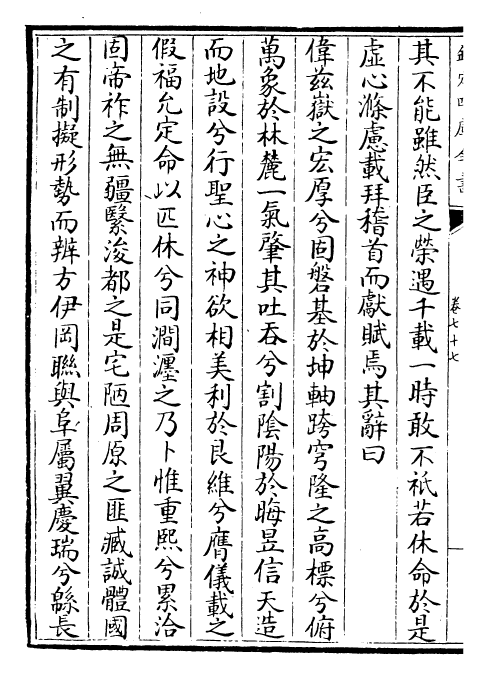 欽定四庫全書
卷七十七
其不能雖然臣之榮遇千載一時敢不祗若休命於是
虛心滌慮載拜稽首而獻賦焉其辭曰
偉茲嶽之宏厚兮固磐基於坤軸跨穹隆之高標兮俯
萬象於林麓一氣肇其吐吞兮割陰陽於晦昱信天造
而地設兮行聖心之神欲相美利於艮維兮膺儀載之
假福允定命以匹休兮同澗瀍之乃卜惟重熙兮累洽
固帝祚之無疆繄浚都之是宅陋周原之匪臧誠體國
之有制擬形勢而辨方伊岡聯與阜屬翼慶瑞兮緜長